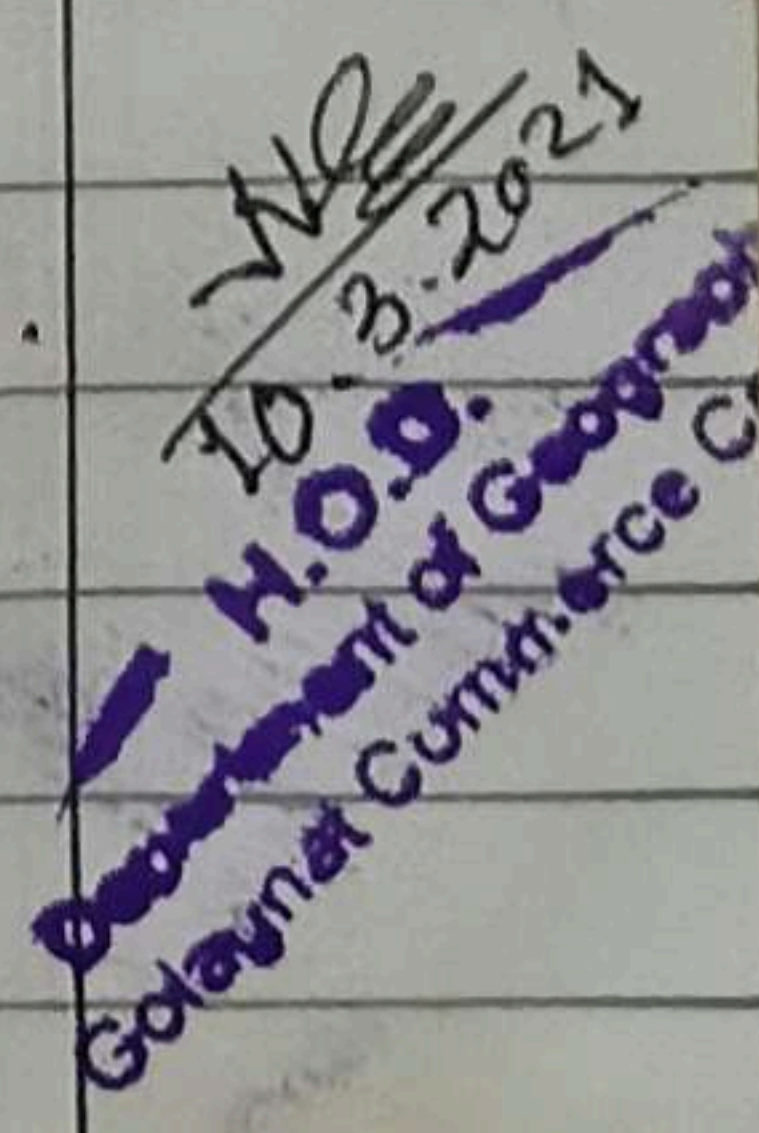 10-3.2021
H.O.D.
Department of Geograph
Golaghat Commerce C